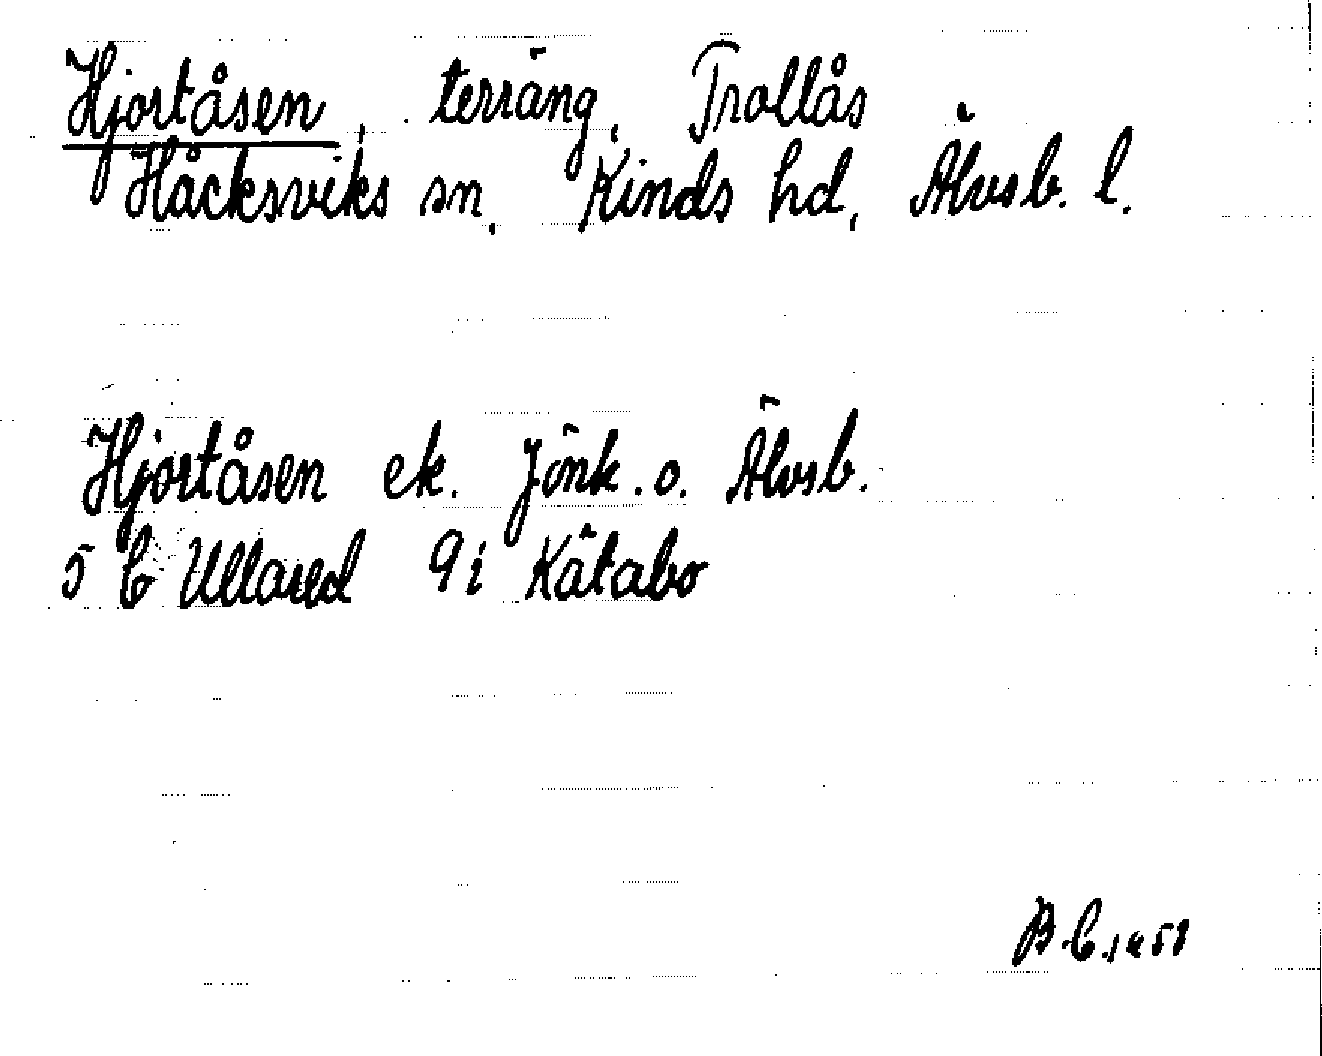 Hjortåsen, terräng, Trollås
Håcksviks sn, Kinds hd, Älvsb. l.
Hjortåsen ek. Jönk. o. Älvsb.
5 C Ullared 9i Kätabo